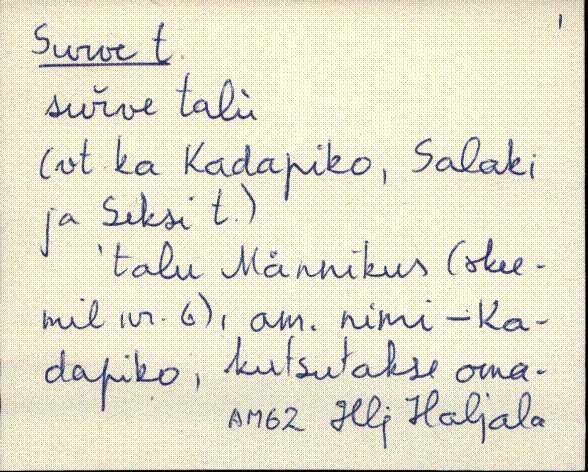 1
Surve t.
suřve talù
(vt ka Kadapiko, Salaki
ja Seksi t.)
'talu Männikus (skee-
mil nr. 6), am. nimi – Ka-
dapiko, kutsutakse oma-
AM62 Hlj Haljala